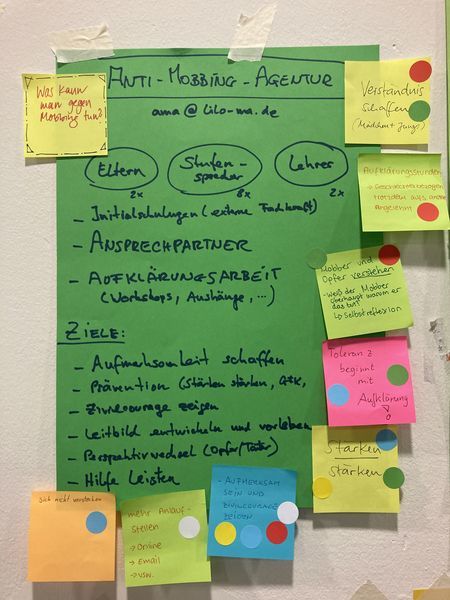 Was kann
man gegen
Mobbing tun?
ANTI-MOBBING-AGENTUR
ama@lilo-ma.de
Eltern
2x
Stufen-
sprecher
8x
Lehrer
2x
- Initialschulungen (externe Fachkraft)
- ANSPRECHPARTNER
- AUFKLÄRUNGSARBEIT
(Workshops, Aushänge, ...)
ZIELE:
- Aufmerksamkeit schaffen
- Prävention (Stärken stärken,
- Zivilcourage zeigen
- Leitbild entwickeln und vorleben
- Perspektivwechsel (Opfer/Täter)
- Hilfe Leisten
Verständnis
schaffen
(Mädchen + Jungs)
Aufklärungsstunden
→ Geschlechterbezogen
trotzdem aufs andere
Angelehnt
Mobber und
Opfer verstehen
- weiß der Mobber
überhaupt warum er
das tut?
↳ Selbstreflexion
Toleranz
beginnt
mit
Aufklärung
Stärken
stärken
Sich nicht verstecken
mehr Anlauf-
Stellen
→ Online
→ Email
→ usw.
- AUFMERKSAM
SEIN UND
ZIVILCOURAGE
ZEIGEN